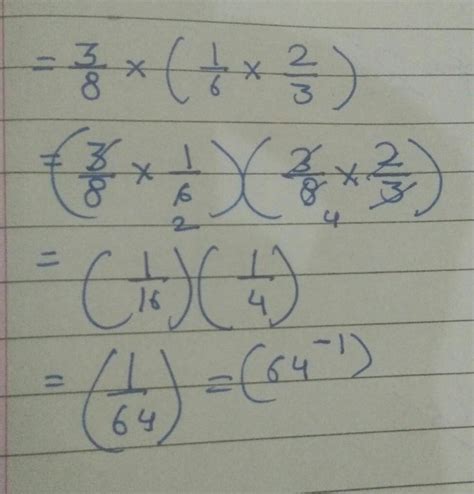 = 3/8 × (1/6 × 2/3)
= (3/8 × 1/6 2) (3/8 4 × 2/3)
= (1/16) (1/4)
= (1/64) = (64⁻¹)